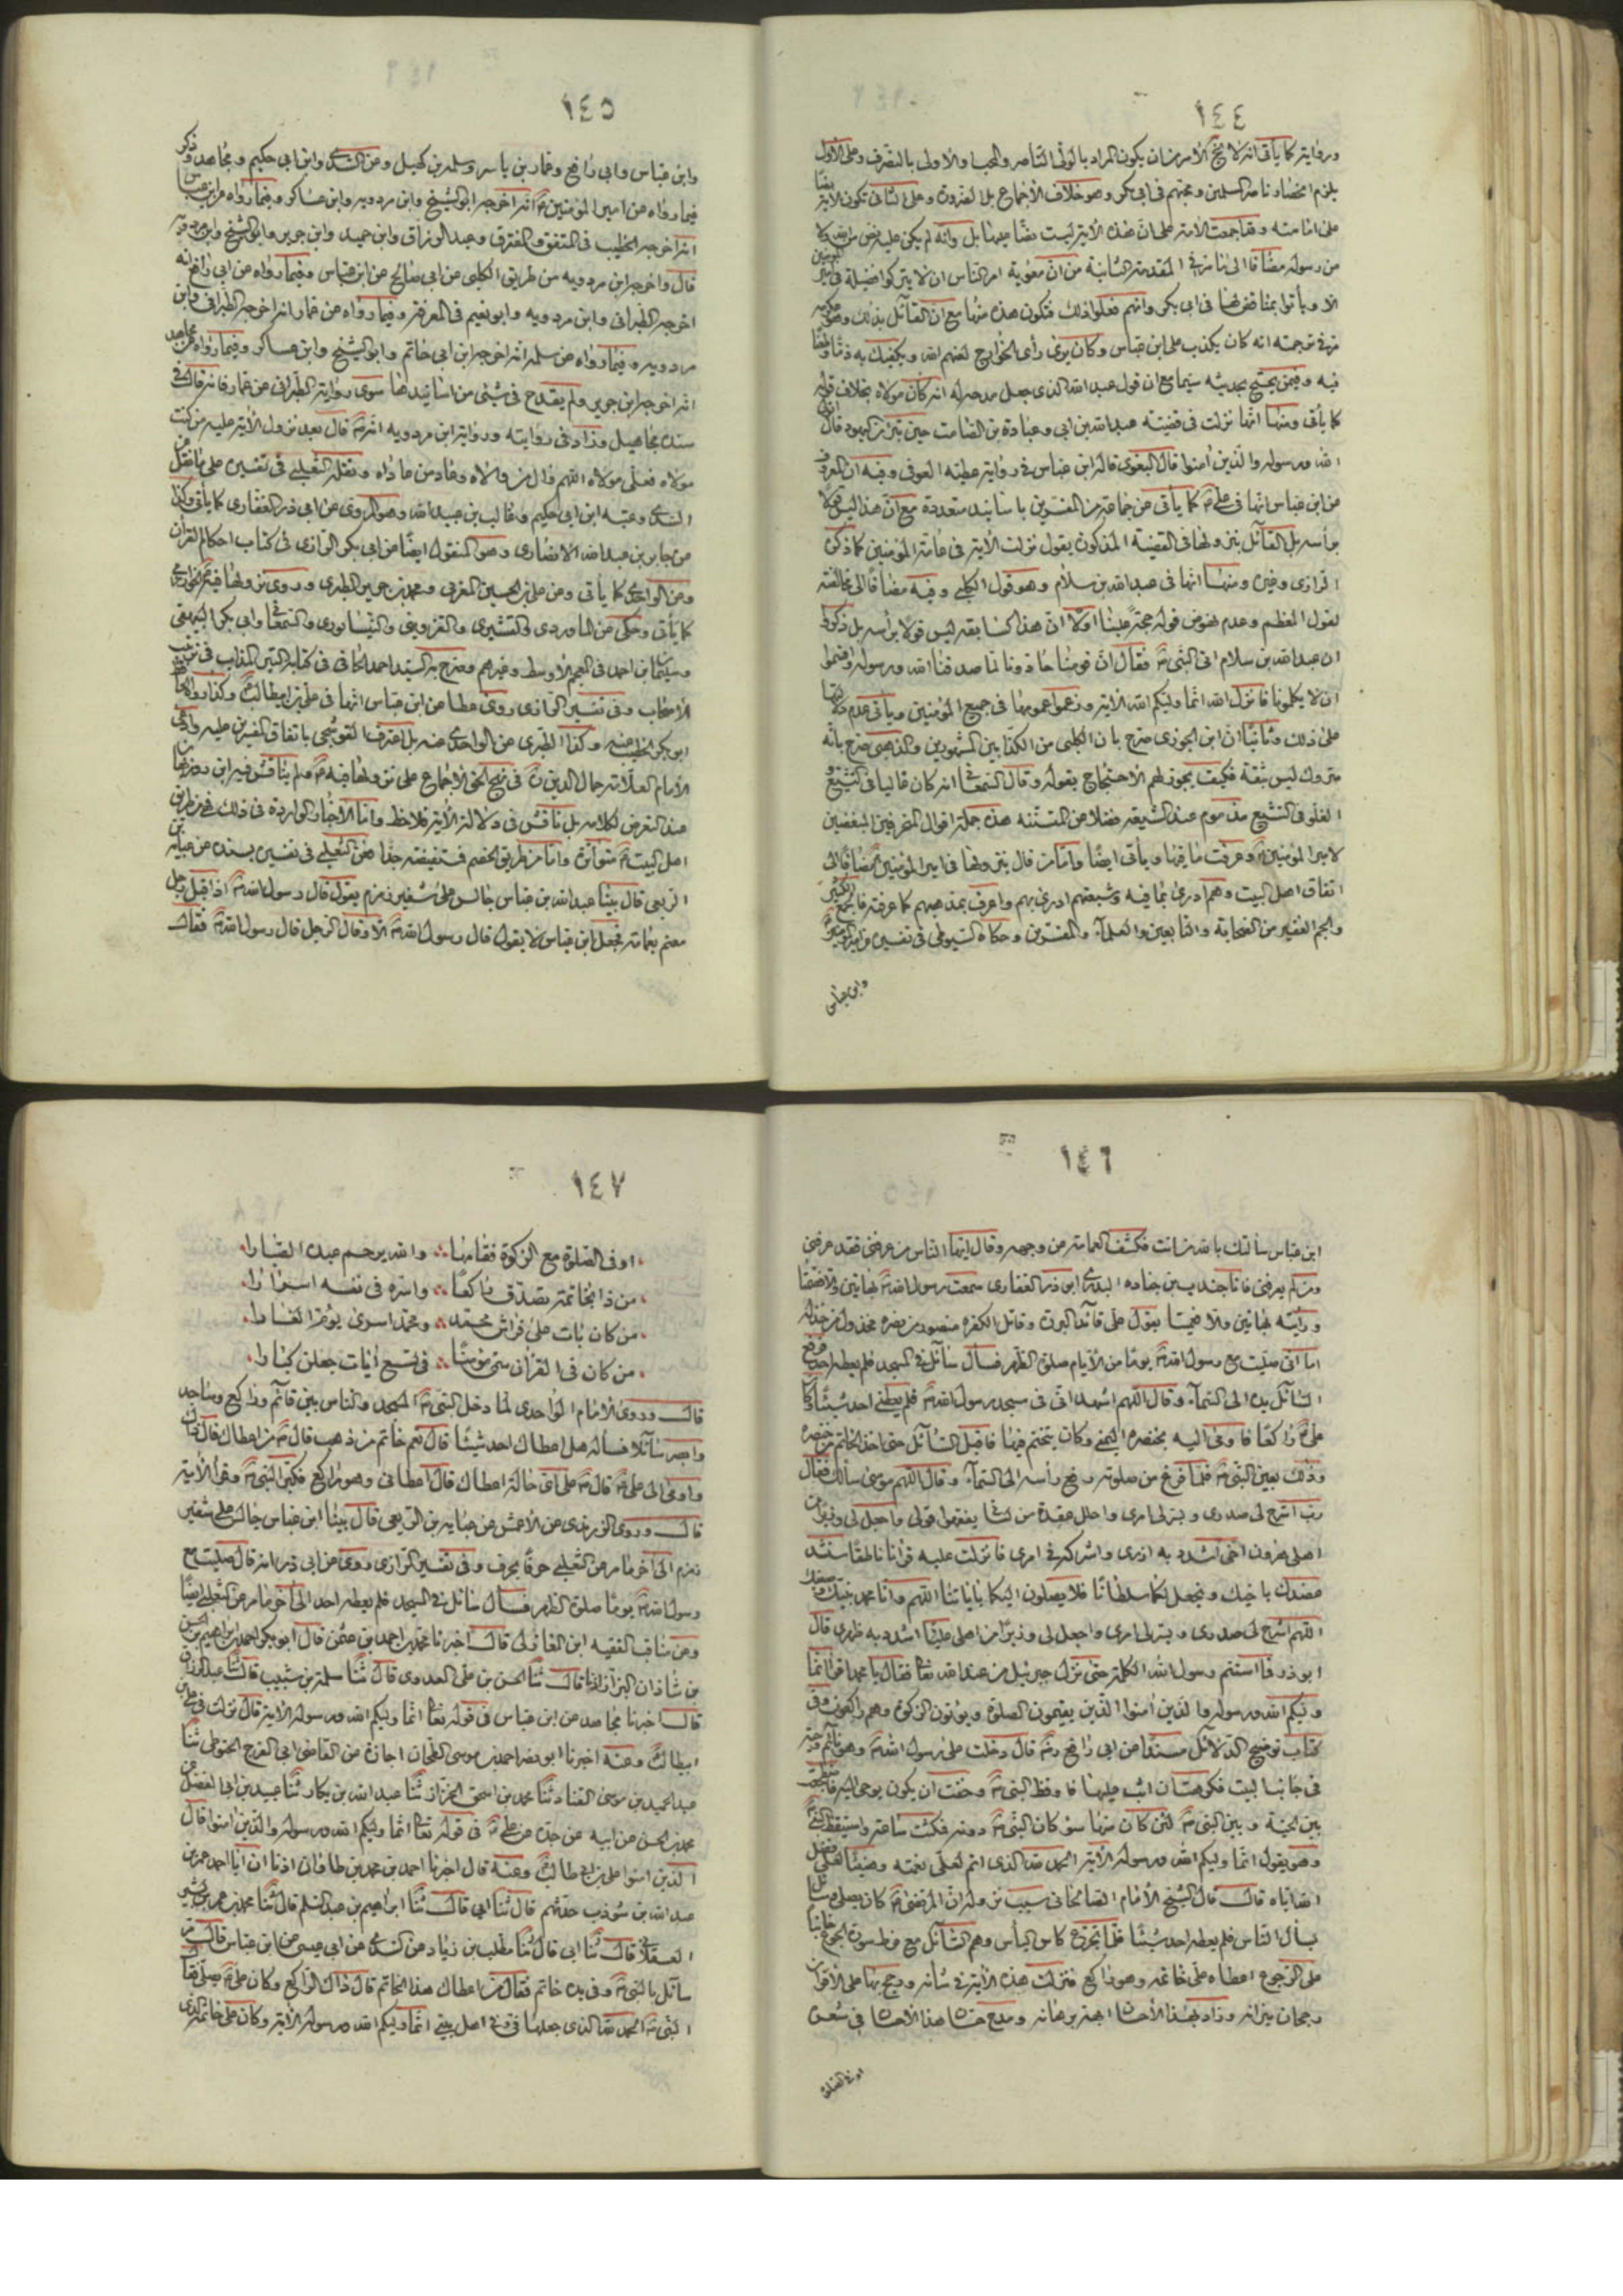 ١٤٤
وروايتر كما يأتى انه لا يخ الأمر من ان يكون المراد بالولى الناصر والمحب والاولى بالتصرف وعلى الاول
يلزم انحصار ناصر المسلمين ومحبهم فى ابى بكر وهو خلاف الأجماع بل الضرورة وعلى الثانى تكون الآية
على امامته وقد اجمعت الأمة على ان هذه الآية ليست نصا عليها بل وانه لم يكن عليه نص من الله ولا
من رسوله مضافا الى ما مر فى المقدمة الثانية من ان معوية امر الناس ان لا يتركوا فضيلة فى
الا ويأتوا بمناقض لها فى ابى بكر وانهم فعلوا ذلك فتكون هذه منها مع ان القائل بذلك وهو عكرمه
مر فى ترجمته انه كان يكذب على ابن عباس وكان يرى رأى الخوارج لعنهم الله ويكفيك به ذما
فيه وفيمن يحتج بحديثه سيما مع ان قول عبد الله الذى جعل مدحرله انه كان مولاه بخلاف قوله
كما يأتى ومنها انها نزلت فى قضيته عبد الله بن ابى وعبادة بن الصامت حين تبرأ من اليهود قال
الله ورسوله والذين آمنوا قال البغوى قاله ابن عباس فى رواية عطية العوفى وفيه ان المعروف
من ابن عباس انها فى على ع كما يأتى عن جماعة من المفسرين باسانيد متعددة مع ان هذا ليس قولا
برأسه بل القائل بنزولها فى القضية المذكورة يقول نزلت الآية فى عامة المؤمنين كما ذكره
الرازى وغيره ومنها انها فى عبد الله بن سلام وهو قول الكلبى وفيه مضافا الى مخالفته
لقول المعظم وعدم نهوض قوله حجة علينا اولا ان هذا كسابقه ليس قولا برأسه بل ذكروا
ان عبد الله بن سلام اتى النبى ص فقال ان قومنا حادونا لما صدقنا الله ورسوله واقسموا
ان لا يكلمونا فانزل الله انما وليكم الله الآية وزعموا عمومها فى جميع المؤمنين ويأتى عدم
على ذلك وثانيا ان ابن الجوزى صرح بان الكلبى من الكذابين المشهورين والذهبى صرح بانه
متروك ليس بثقة فكيف يجوز لهم الاحتجاج بقوله وقال السمعانى انه كان غاليا فى التشيع و
الغلو فى التشيع مذموم عند الشيعة فضلا عن المتسننه هذه جملة اقوال المنحرفين المبغضين
لامير المؤمنين ع وعرفت ما فيها ويأتى ايضا واما من قال بنزولها فى امير المؤمنين ع مضافا الى
اتفاق اهل البيت وهم ادرى بما فيه وشيعتهم ادرى بهم واعرف بمذهبهم كما عرفته فالجمع الكثير
والجم الغفير من الصحابة والتابعين والعلماء والمفسرين وحكاه السيوطى فى تفسيره عن امير المؤمنين ع
وابن عباس
١٤٥
وابن عباس وابى رافع وعمار بن ياسر وسلمه بن كهيل وعن السدى وابن ابى حكيم ومجاهد وذكر
فيما رواه عن امير المؤمنين ع انه اخرجه ابو الشيخ وابن مردويه وابن عساكر وفيما رواه عن ابن عباس
انه اخرجه الخطيب فى المتفق والمفترق وعبد الرزاق وابن حميد وابن جرير وابو الشيخ وابن مردويه
قال واخرج ابن مردويه من طريق الكلبى عن ابى صالح عن ابن عباس وفيما رواه عن ابى رافع انه
اخرجه الطبرانى وابن مردويه وابو نعيم فى المعرفة وفيما رواه عن عمار انه اخرجه الطبرانى وابن
مردويه وفيما رواه عن سلمه انه اخرجه ابن ابى حاتم وابو الشيخ وابن عساكر وفيما رواه عن مجاهد
انه اخرجه ابن جرير ولم يقدح فى شئى من اسانيدها سوى رواية الطبرانى عن عمار فانه قال فى
سنده مجاهيل وزاد فى روايته ورواية ابن مردويه انه ص قال بعد نزول الآية عليه من كنت
مولاه فعلى مولاه اللهم وال من والاه وعاد من عاداه ونقله الثعلبى فى تفسيره على ما نقل عن
السدى وعتبه ابن ابى حكيم وغالب بن عبيد الله وهو المروى عن ابى ذر الغفارى كما يأتى وكذا
عن جابر بن عبد الله الانصارى وهو المنقول ايضا عن ابى بكر الرازى فى كتاب احكام القرآن
وعن الواحدى كما يأتى وعن على بن الحسين المغربى ومحمد بن جرير الطبرى وروى نزولها فيه ع الخوارزمى
كما يأتى وحكى عن الماوردى والقشيرى والقزوينى والنيسابورى والسمعانى وابى بكر البيهقى
وسليمان بن احمد فى المعجم الاوسط وغيرهم وصرح به السيد احمد الحافى فى كتابه التبر المذاب فى ترتيب
الأصحاب وفى تفسير الرازى روى عطا عن ابن عباس انها فى على بن ابيطالب ع وكذا رواه الحافظ
ابو بكر الخطيب عنه وكذا الطبرى عن الواحدى عنه بل اعترف القوشجى باتفاق المفسرين عليه وادعى
الأمام العلامة جمال الدين ره فى نهج الحق الاجماع على نزولها فيه ع ولم يناقش فيه ابن روزبهان
عند التعرض لكلامه بل ناقش فى دلالة الآية فلاحظ واما الأخبار الواردة فى ذلك فمن طريق
اهل البيت ع متواترة واما من طريق الخصم فمستفيضة جدا فعن الثعلبى فى تفسيره بسنده عن عباية بن
الربعى قال بينا عبد الله بن عباس جالس على شفير زمزم يقول قال رسول الله ص اذ اقبل رجل
معتم بعمامة فجعل ابن عباس لا يقول قال رسول الله ص الا وقال الرجل قال رسول الله ص فقال
١٤٦
ابن عباس سألتك بالله من انت فكشف العمامة عن وجهه وقال ايها الناس من عرفنى فقد عرفنى
ومن لم يعرفنى فانا جندب بن جناده البدرى ابو ذر الغفارى سمعت رسول الله ص بهاتين والا فصمتا
ورأيته بهاتين والا فعميتا يقول على قائد البررة وقاتل الكفره منصور من نصره مخذول من خذله
اما انى صليت مع رسول الله ص يوما من الأيام صلوة الظهر فسأل سائل فى المسجد فلم يعطه احد فرفع
السائل يده الى السماء وقال اللهم اشهد انى فى مسجد رسول الله ص فلم يعطنى احد شيئا وكان
على ع راكعا فاومى اليه بخنصره اليمنى وكان يتختم فيها فاقبل السائل حتى اخذ الخاتم من خنصره
وذلك بعين النبى ص فلما فرغ من صلوته رفع رأسه الى السماء وقال اللهم موسى سألك فقال
رب اشرح لى صدرى ويسر لى امرى واحلل عقدة من لسانى يفقهوا قولى واجعل لى وزيرا من
اهلى هرون اخى اشدد به ازرى واشركه فى امرى فانزلت عليه قرآنا ناطقا سنشد
عضدك باخيك ونجعل لكما سلطانا فلا يصلون اليكما بآياتنا اللهم وانا محمد نبيك وصفيك
اللهم اشرح لى صدرى ويسر لى امرى واجعل لى وزيرا من اهلى عليا اشدد به ظهرى قال
ابو ذر فما استتم رسول الله الكلمة حتى نزل جبرئيل من عند الله تعا فقال يا محمد اقرأ انما
وليكم الله ورسوله والذين آمنوا الذين يقيمون الصلوة ويؤتون الزكوة وهم راكعون وفى
كتاب توضيح الدلائل مسندا عن ابى رافع رض قال دخلت على رسول الله ص وهو نائم وحية
فى جانب البيت فكرهت ان اثب عليها فاوقظ النبى ص وخفت ان يكون يوحى اليه فاضطجعت
بين الحية وبين النبى ص لئن كان منها سوء كان الىّ دونه فمكثت ساعة واستيقظ النبى ص
وهو يقول انما وليكم الله ورسوله الآية الحمد لله الذى اتم لعلى نعمته وهنيئا لعلى بفضل
الله اياه قال قال الشيخ الأمام الصالحانى سبب نزوله ان المرتضى ع كان يصلى وسائل
يسأل الناس فلم يعطه احد شيئا فلما تجرع كاس اليأس وهم السائل مع فرط سورة الجوع خائبا
على الرجوع اعطاه على خاتمه وهو راكع فنزلت هذه الآية فى شأنه ورجح بها على الأقران
رجحان ميزانه وزاد بهذا الأحسان ابهة برهانه ومدح حسان هذا الأحسان فى شعره
اوفى الصلوة
١٤٧
اوفى الصلوة مع الزكوة فقامها ∴ والله يرحم عبده الصبارا
من ذا بخاتمه تصدق راكعا ∴ واسره فى نفسه اسرارا
من كان بات على فراش محمد ∴ ومحمد اسرى يؤم الغارا
من كان فى القرآن سمى مؤمنا ∴ فى تسع آيات جعلن كبارا
قال وروى الأمام الواحدى لما دخل النبى ص المسجد والناس بين قائم وراكع وساجد
وابصر سائلا فسأله هل اعطاك احد شيئا قال نعم خاتم من ذهب قال ص من اعطاك قال ذاك
واومى الى على ع قال ص على اى حالة اعطاك قال اعطانى وهو راكع فكبر النبى ص وقرأ الآية
قال وروى الزرندى عن الأعمش عن عبايه بن الربعى قال بينا ابن عباس جالس على شفير
زمزم الى آخر ما مر عن الثعلبى حرفا بحرف وفى تفسير الرازى روى عن ابى ذر انه قال صليت مع
رسول الله ص يوما صلوة الظهر فسأل سائل فى المسجد فلم يعطه احد الى آخر ما مر عن الثعلبى ايضا
وعن مناقب الفقيه ابن المغازلى قال اخبرنا محمد بن احمد بن عثمن قال ابو بكر احمد بن ابراهيم بن الحسن
بن شاذان البزاز اذنا قال ثنا الحسن بن على العدوى قال ثنا سلمة بن شبيب قال ثنا عبد الرزاق
قال اخبرنا مجاهد عن ابن عباس فى قوله تعا انما وليكم الله ورسوله الآية قال نزلت فى على بن
ابيطالب ع وعنه اخبرنا ابو نصر احمد بن موسى الطحان اجازة عن القاضى ابى الفرج الحنوطى ثنا
عبد الحميد بن موسى القناد ثنا محمد بن اسحق الخزاز ثنا عبد الله بن بكار ثنا عبيد بن ابى الفضل عن
محمد بن الحسن عن ابيه عن جده عن على ع فى قوله تعا انما وليكم الله ورسوله والذين آمنوا قال
الذين آمنوا على بن ابى طالب ع وعنه قال اخبرنا احمد بن محمد بن طاوان اذنا ان ابا احمد عمر بن
عبد الله بن شوذب حدثهم قال ثنا ابى قال ثنا ابراهيم بن عبد السلم قال ثنا محمد بن عمر بن بشير
العسقلانى قال ثنا ابى قال ثنا مطلب بن زياد عن السدى عن ابى عيسى عن ابن عباس قال مر
سائل بالنبى ص وفى يده خاتم فقال من اعطاك هذا الخاتم قال ذاك الراكع وكان على ع يصلى فقال
النبى ص الحمد لله الذى جعلها فىّ وفى اهل بيتى انما وليكم الله ورسوله الآية وكان على خاتمه الذى